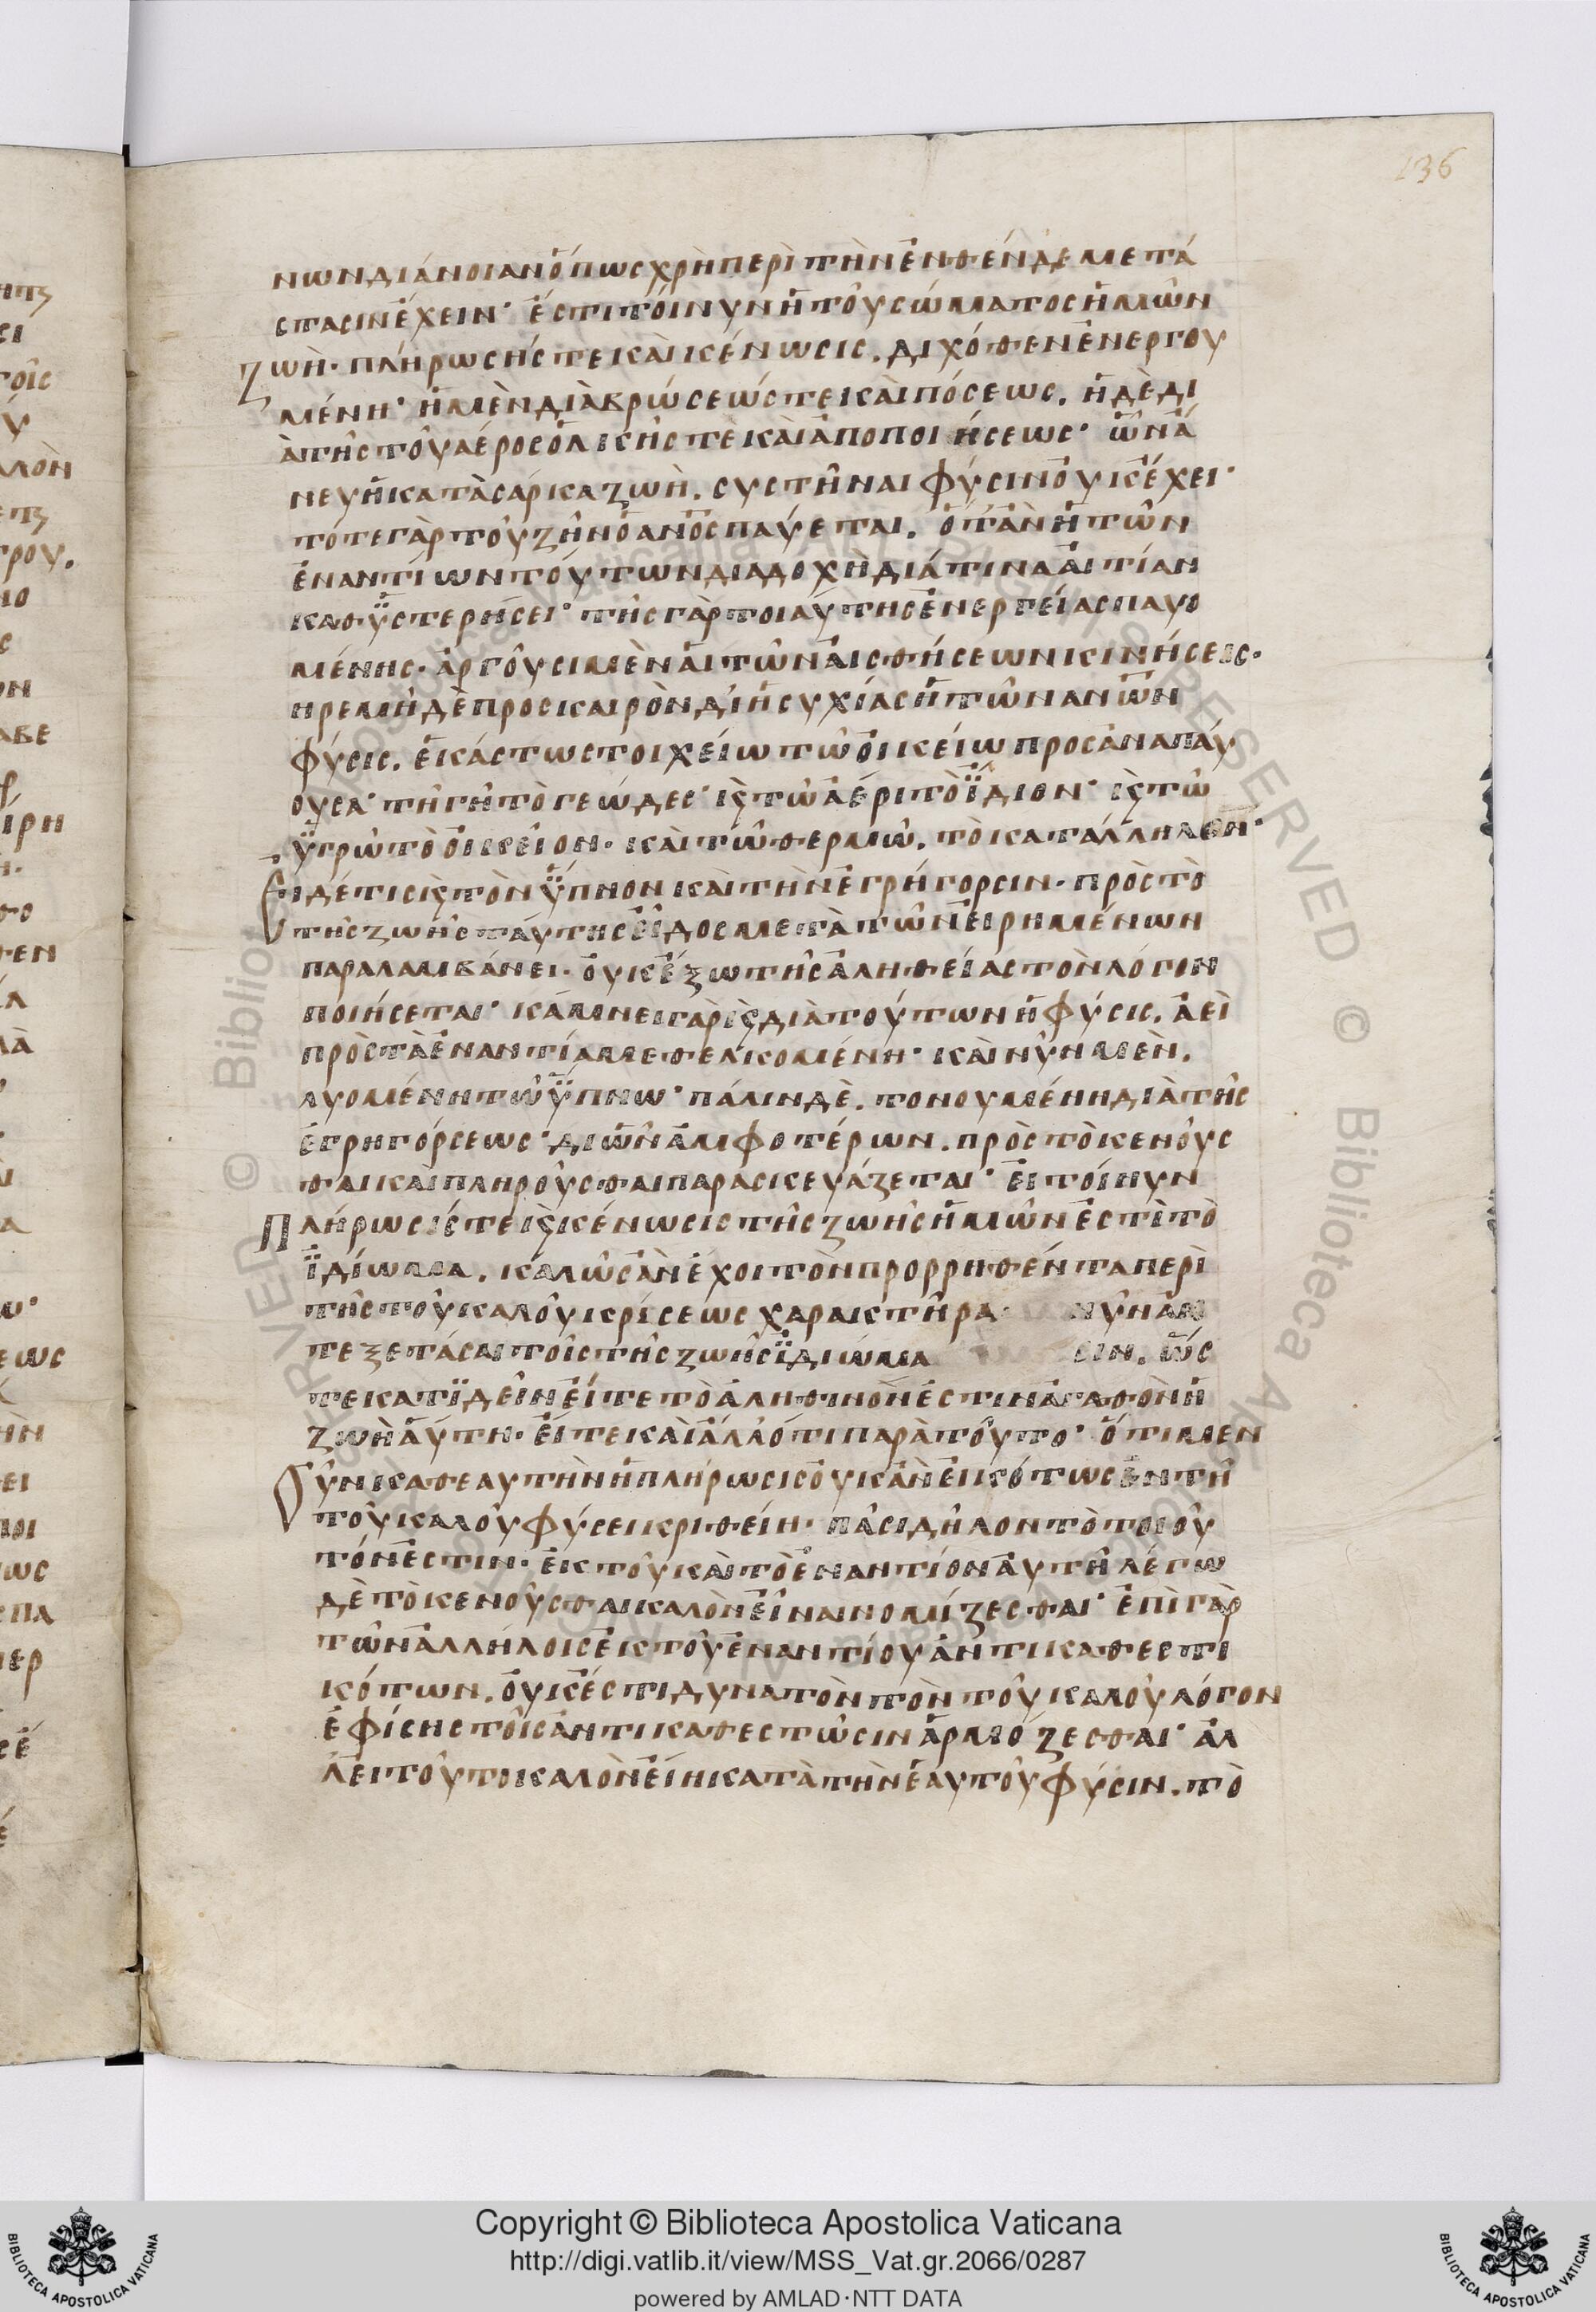 136
νων διάνοιαν ὅπως χρὴ περὶ τὴν ἐνθένδε μετά
στασιν ἔχειν· ἔστι τοίνυν ἡ τοῦ σώματος ἡμῶν
ζωὴ· πλήρωσίς τε καὶ κένωσις. διχόθεν ἐνεργου
μένη· ἡ μὲν διὰ βρώσεώς τε καὶ πόσεως. ἡ δὲ δι
ὰ τῆς τοῦ ἀέρος ὁλκῆς τὲ καὶ ἀποποιήσεως· ὧν ἄ
νευ ἡ κατὰ σάρκα ζωὴ. συστῆναι φύσιν οὐκ ἔχει·
τότε γὰρ τοῦ ζῆν ὁ ανος παύεται. ὅταν ἡ τῶν
ἐναντίων τούτων διαδοχὴ διά τινα αἰτίαν
καθυστερήσει· τῆς γὰρ τοιαύτης ἐνεργείας παυο
μένης· ἀργοῦσι μὲν αἱ τῶν αἰσθήσεων κινήσεις·
ηρεμῆ δὲ προς καιρὸν δι ἡσυχίας ἡ τῶν ανων
φύσις. ἑκάστω στοιχείω τῶ οἰκείω προσαναπαύ
ουσα· τῆ γῆ τὸ γεώδες· κς τῶ ἀέρι τὸ ἴδιον· κς τῶ
ὑγρῶ τὸ οἰκεῖον· καὶ τῶ θερμῶ. τὸ κατάλληλον·
Εἰ δέ τις κς τὸν ὕπνον καὶ τὴν ἐγρήγορσιν· πρὸς τὸ
τῆς ζωῆς ταύτης εἶδος μετὰ τῶν εἰρημένων
παραλαμβάνει· οὐκ ἔξω τῆς ἀληθείας τὸν λόγον
ποιήσεται· κάμνει γὰρ κς διὰ τούτων ἡ φύσις. ἀεὶ
πρὸς τὰ ἐναντία μεθελκομένη· καὶ νῦν μὲν.
λυομένη τῶ ὕπνω· πάλιν δὲ. τονουμένη διὰ τῆς
ἐγρηγόρσεως· δι ὧν ἀμφοτέρων. πρὸς τὸ κενοῦς
θαι και πληροῦσθαι παρασκευάζεται· εἰ τοίνυν
Πλήρωσίς τε κς κένωσις τῆς ζωῆς ἡμῶν ἐστὶ τὸ
ἰδίωμα. καλῶς ἂν ἔχοι τὸν προρρηθέντα περὶ
τῆς τοῦ καλοῦ κρίσεως χαρακτῆρα νῦν ἀν
τεξετάσαι τοῖς τῆς ζωῆς ἰδιώμα σιν. ὥς
τε κατιδεῖν εἴτε τὸ ἀληθινὸν ἐστιν ἀγαθὸν ἡ
ζωὴ ἁύτη· εἴτε καὶ ἄλλό τι παρὰ τοῦτο· ὅτι μεν
Οὖν καθεαυτὴν ἡ πλήρωσις οὐκ ἂν εἰκότως ἐν τῆ
τοῦ καλοῦ φύσει κριθείη· πᾶσι δῆλον τὸ τοιοῦ
τόν ἐστιν· ἐκ τοῦ καὶ τὸ ἐναντίον αὐτῆ λέγω
δὲ τὸ κενοῦσθαι καλὸν εἶναι νομίζεσθαι· ἐπὶ γὰρ
τῶν ἀλλήλοις ἐκ τοῦ ἐναντίου ἀντικαθεστι
κότων. οὐκ ἔστι δυνατὸν τὸν τοῦ καλοῦ λόγον
ἐφίσης τοῖς ἀντικαθεστῶσιν ἁρμόζεσθαι· ἀλ
λ εἰ τοῦτο καλὸν εἴη κατὰ τὴν ἑαυτοῦ φύσιν. τὸ
Copyright © Biblioteca Apostolica Vaticana
http://digi.vatlib.it/view/MSS_Vat.gr.2066/0287
powered by AMLAD·NTT DATA